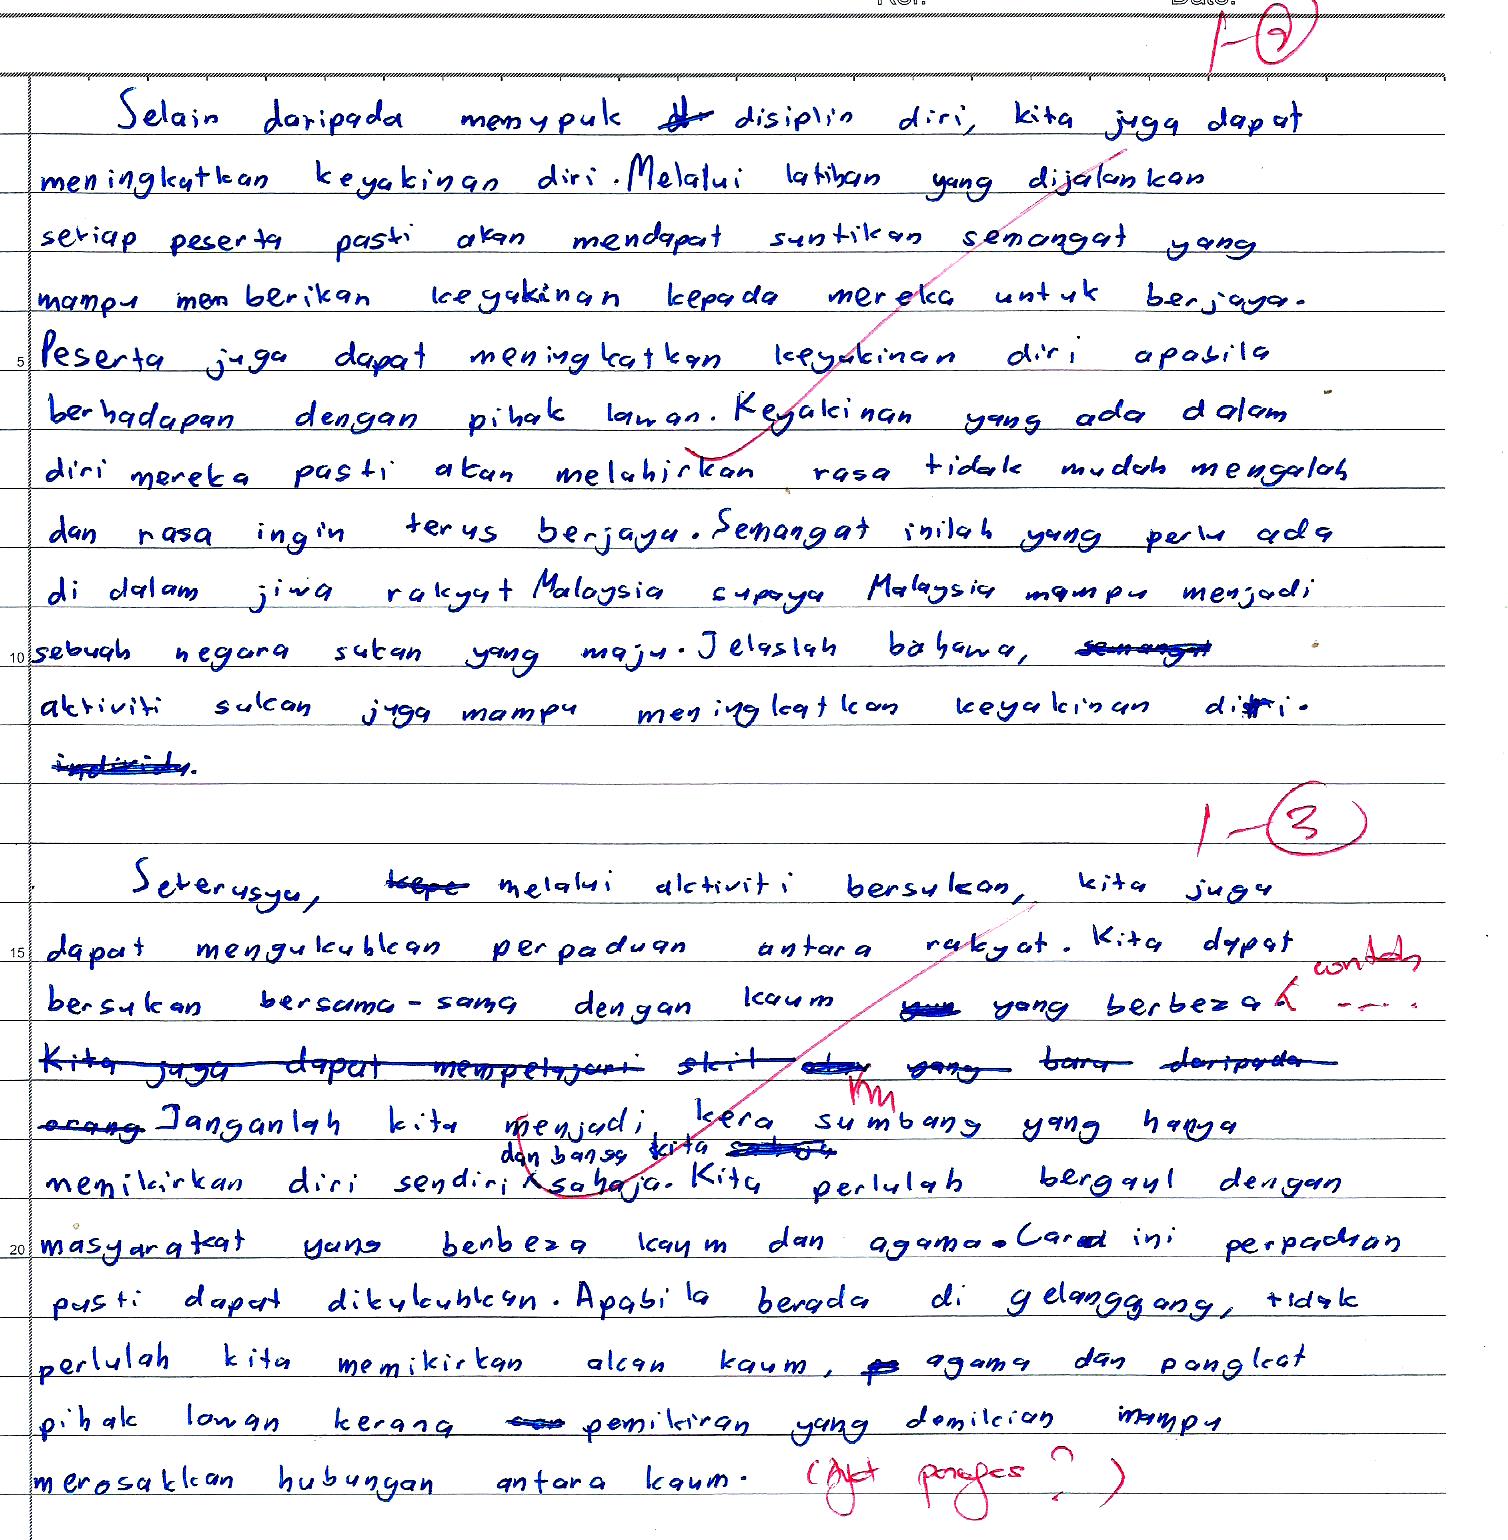 1-2
Selain daripada menupuk disiplin diri, kita juga dapat
meningkatkan keyakinan diri. Melalui latihan yang dijalankan
setiap peserta pasti akan mendapat suntikan semangat yang
mampu memberikan keyakinan kepada mereka untuk berjaya.
5 Peserta juga dapat meningkatkan keyakinan diri apabila
berhadapan dengan pihak lawan. Keyakinan yang ada dalam
diri mereka pasti akan melahirkan rasa tidak mudah mengalah
dan rasa ingin terus berjaya. Semangat inilah yang perlu ada
di dalam jiwa rakyat Malaysia supaya Malaysia mampu menjadi
10 sebuah negara sukan yang maju. Jelaslah bahawa, semangat
aktiviti sukan juga mampu meningkatkan keyakinan diri.
individu.
1-3
Seterusya, kepe melalui aktiviti bersukan, kita juga
15 dapat mengukuhkan perpaduan antara rakyat. Kita dapat
, contoh
bersukan bersama-sama dengan kaum yang berbeza ....
Kita juga dapat mempelajari skil yang baru daripada
orang Janganlah kita menjadi kera sumbang yang hanya
dan bangsa kita sahaja
memikirkan diri sendiri sahaja. Kita perlulah bergaul dengan
20 masyarakat yang berbeza kaum dan agama. Cara ini perpaduan
pasti dapat dikukuhkan. Apabila berada di gelanggang, tidak
perlulah kita memikirkan akan kaum, agama dan pangkat
pihak lawan kerana pemikiran yang demikian mampu
merosakkan hubungan antara kaum. (Ayat penegas?)